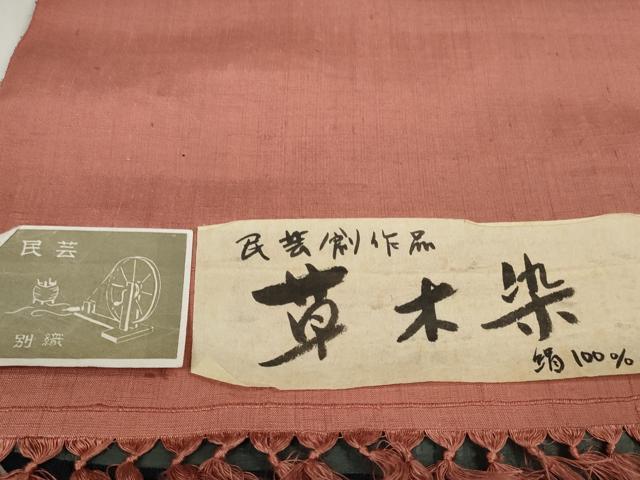 民芸
別織
民芸創作品
草木染
絹100%